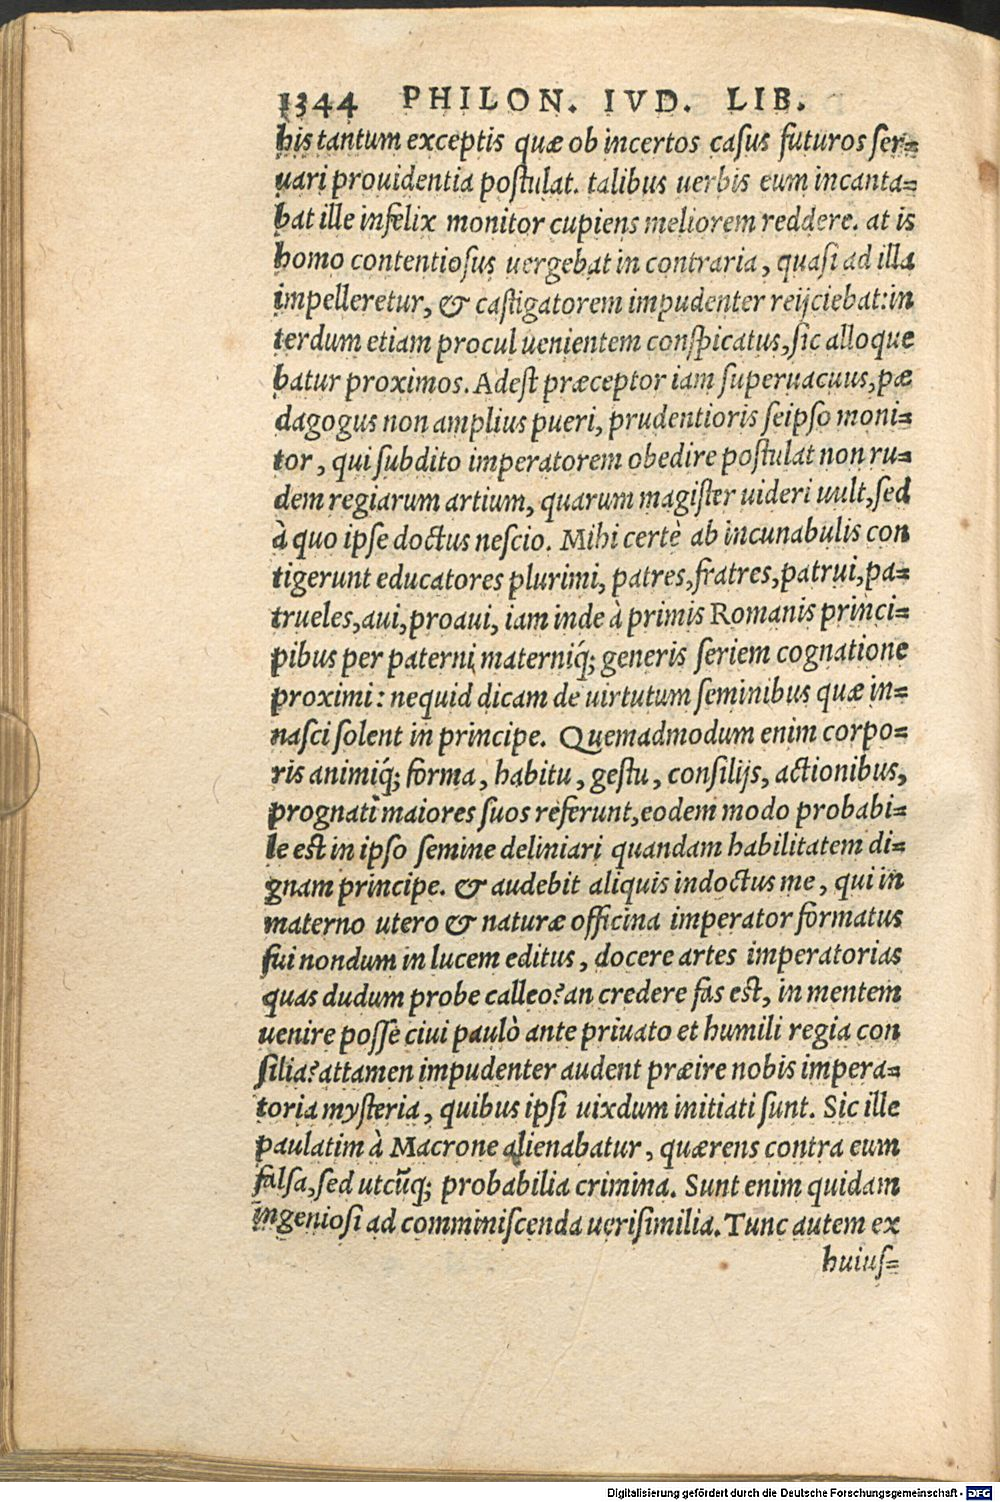 1344 PHILON. IVD. LIB.
his tantum exceptis quæ ob incertos casus futuros ser=
uari prouidentia postulat. talibus uerbis eum incanta=
bat ille infelix monitor cupiens meliorem reddere. at is
homo contentiosus uergebat in contraria, quasi ad illa
impelleretur, & castigatorem impudenter reijciebat: in
terdum etiam procul uenientem conspicatus, sic alloque
batur proximos. Adest præceptor iam superuacuus, pæ
dagogus non amplius pueri, prudentioris seipso moni=
tor, qui subdito imperatorem obedire postulat non ru=
dem regiarum artium, quarum magister uideri uult, sed
à quo ipse doctus nescio. Mihi certè ab incunabulis con
tigerunt educatores plurimi, patres, fratres, patrui, pa=
trueles, aui, proaui, iam inde à primis Romanis princi=
pibus per paterni materniq́; generis seriem cognatione
proximi: nequid dicam de uirtutum seminibus quæ in=
nasci solent in principe. Quemadmodum enim corpo=
ris animiq́; forma, habitu, gestu, consilijs, actionibus,
prognati maiores suos referunt, eodem modo probabi=
le est in ipso semine deliniari quandam habilitatem di=
gnam principe. & audebit aliquis indoctus me, qui in
materno utero & naturæ officina imperator formatus
fui nondum in lucem editus, docere artes imperatorias
quas dudum probe calleo? an credere fas est, in mentem
uenire posse ciui paulò ante priuato et humili regia con
silia? attamen impudenter audent præire nobis impera=
toria mysteria, quibus ipsi uixdum initiati sunt. Sic ille
paulatim à Macrone alienabatur, quærens contra eum
falsa, sed utcũq; probabilia crimina. Sunt enim quidam
ingeniosi ad comminiscenda uerisimilia. Tunc autem ex
huius=
Digitalisierung gefördert durch die Deutsche Forschungsgemeinschaft - DFG